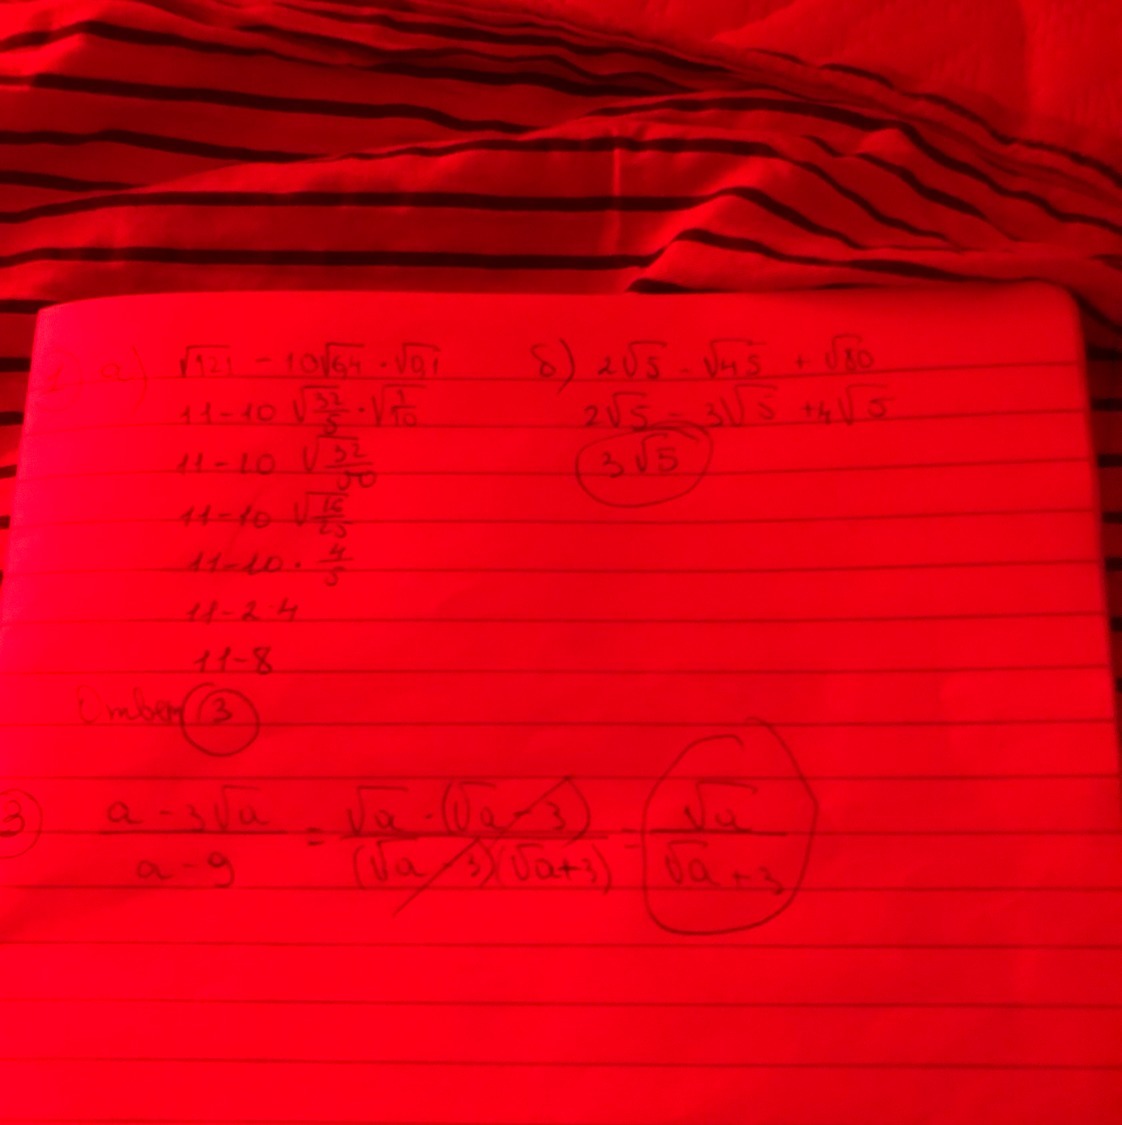 1 а) √121 - 10√6,4 · √0,1
11-10 √32/5 · √1/10
11-10 √32/50
11-10 √16/25
11-10 · 4/5
11-2·4
11-8
Ответ 3
б) 2√5 - √45 + √80
2√5 - 3√5 + 4√5
3√5
3 a - 3√a / a - 9 = √a · (√a - 3) / (√a - 3)(√a + 3) = √a / √a + 3